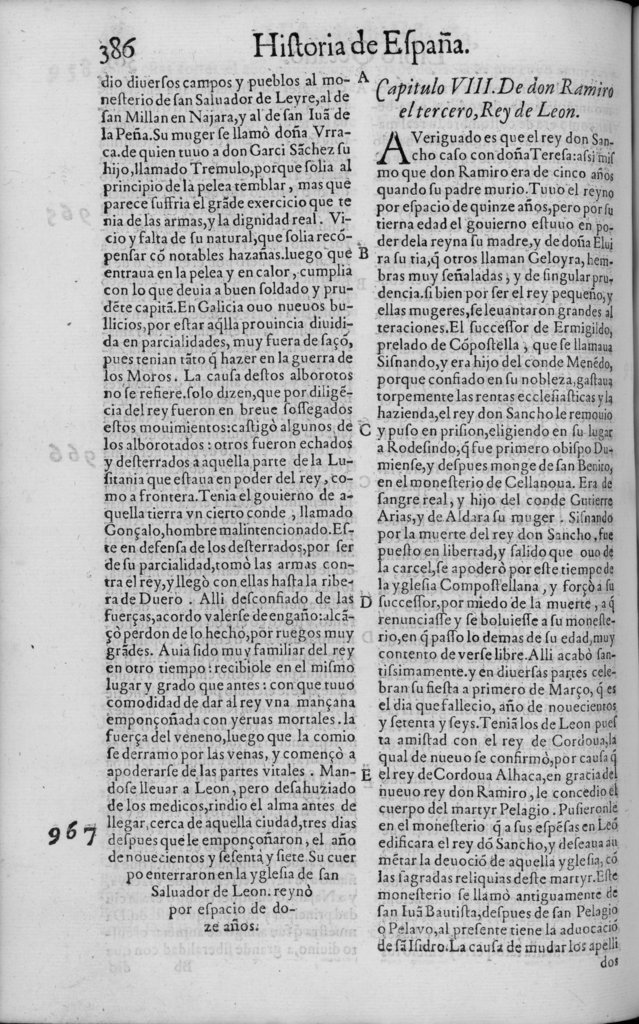 386 Hiſtoria de Eſpaña.
dio diuerſos campos y pueblos al mo-
neſterio de ſan Saluador de Leyre, al de
ſan Millan en Najara, y al de ſan Iuã de
la Peña. Su muger ſe llamò doña Vrra-
ca. de quien tuuo a don Garci Sãchez ſu
hijo, llamado Tremulo, porque ſolia al
principio de la pelea temblar, mas que
parece ſuffria el grãde exercicio que te
nia de las armas, y la dignidad real. Vi-
cio y falta de ſu natural, que ſolia recõ-
penſar cõ notables hazañas. luego que
entraua en la pelea y en calor, cumplia
con lo que deuia a buen ſoldado y pru-
dẽte capitã. En Galicia ouo nueuos bu-
llicios, por eſtar aq̃lla prouincia diuidi-
da en parcialidades, muy fuera de ſaçõ,
pues tenian tãto q̃ hazer en la guerra de
los Moros. La cauſa deſtos alborotos
no ſe refiere. ſolo dizen, que por diligẽ-
cia del rey fueron en breue ſoſſegados
eſtos mouimientos: caſtigò algunos de
los alborotados: otros fueron echados
y deſterrados a aquella parte de la Lu-
ſitania que eſtaua en poder del rey, co-
mo a frontera. Tenia el gouierno de a-
quella tierra vn cierto conde, llamado
Gonçalo, hombre malintencionado. Eſ-
te en defenſa de los deſterrados, por ſer
de ſu parcialidad, tomò las armas con-
tra el rey, y llegò con ellas haſta la ribe-
ra de Duero. Alli deſconfiado de las
fuerças, acordo valerſe de engaño: alcã-
çò perdon de lo hecho, por ruegos muy
grãdes. Auia ſido muy familiar del rey
en otro tiempo: recibiole en el miſmo
lugar y grado que antes: con que tuuo
comodidad de dar al rey vna mançana
emponçoñada con yeruas mortales. la
fuerça del veneno, luego que la comio
ſe derramo por las venas, y començò a
apoderarſe de las partes vitales. Man-
doſe lleuar a Leon, pero deſahuziado
de los medicos, rindio el alma antes de
llegar, cerca de aquella ciudad, tres dias
deſpues que le emponçoñaron, el año
de nouecientos y ſeſenta y ſiete. Su cuer
po enterraron en la ygleſia de ſan
Saluador de Leon. reynò
por eſpacio de do-
ze años.
967
A
B
C
D
E
Capitulo VIII. De don Ramiro
el tercero, Rey de Leon.
AVeriguado es que el rey don San-
cho caſo con doña Tereſa: aſſi miſ
mo que don Ramiro era de cinco años
quando ſu padre murio. Tuuo el reyno
por eſpacio de quinze años, pero por ſu
tierna edad el gouierno eſtuuo en po-
der de la reyna ſu madre, y de doña Elui
ra ſu tia, q̃ otros llaman Geloyra, hem-
bras muy ſeñaladas, y de ſingular pru-
dencia. ſi bien por ſer el rey pequeño, y
ellas mugeres, ſe leuantaron grandes al
teraciones. El ſucceſſor de Ermigildo,
prelado de Cõpoſtella, que ſe llamaua
Siſnando, y era hijo del conde Menẽdo,
porque confiado en ſu nobleza, gaſtaua
torpemente las rentas eccleſiaſticas y la
hazienda, el rey don Sancho le remouio
y puſo en priſion, eligiendo en ſu lugar
a Rodeſindo, q̃ fue primero obiſpo Du-
mienſe, y deſpues monge de ſan Benito,
en el moneſterio de Cellanoua. Era de
ſangre real, y hijo del conde Gutierre
Arias, y de Aldara ſu muger. Siſnando
por la muerte del rey don Sancho, fue
pueſto en libertad, y ſalido que ouo de
la carcel, ſe apoderò por eſte tiempo de
la ygleſia Compoſtellana, y forçò a ſu
ſucceſſor, por miedo de la muerte, a q̃
renunciaſſe y ſe boluieſſe a ſu moneſte-
rio, en q̃ paſſo lo demas de ſu edad, muy
contento de verſe libre. Alli acabò ſan-
tiſſimamente. y en diuerſas partes cele-
bran ſu fieſta a primero de Março, q̃ es
el dia que fallecio, año de nouecientos
y ſetenta y ſeys. Teniã los de Leon pueſ
ta amiſtad con el rey de Cordoua, la
qual de nueuo ſe confirmò, por cauſa q̃
el rey de Cordoua Alhaca, en gracia del
nueuo rey don Ramiro, le concedio el
cuerpo del martyr Pelagio. Puſieronle
en el moneſterio q̃ a ſus eſpẽſas en Leõ
edificara el rey dõ Sancho, y deſeaua au
mẽtar la deuociõ de aquella ygleſia, cõ
las ſagradas reliquias deſte martyr. Eſte
moneſterio ſe llamò antiguamente de
ſan Iuã Bautiſta, deſpues de ſan Pelagio
o Pelayo, al preſente tiene la aduocaciõ
de ſã Iſidro. La cauſa de mudar los apelli
dos